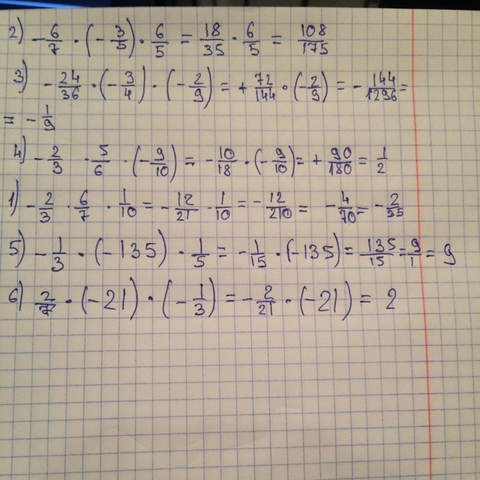 2) -6/7 · (-3/5) · 6/5 = 18/35 · 6/5 = 108/175
3) -24/36 · (-3/4) · (-2/9) = +72/144 · (-2/9) = -144/1296 =
= -1/9
4) -2/3 · 5/6 · (-9/10) = -10/18 · (-9/10) = +90/180 = 1/2
1) -2/3 · 6/7 · 1/10 = -12/21 · 1/10 = -12/210 = -4/70 = -2/35
5) -1/3 · (-135) · 1/5 = -1/15 · (-135) = 135/15 = 9/1 = 9
6) 2/7 · (-21) · (-1/3) = -2/21 · (-21) = 2